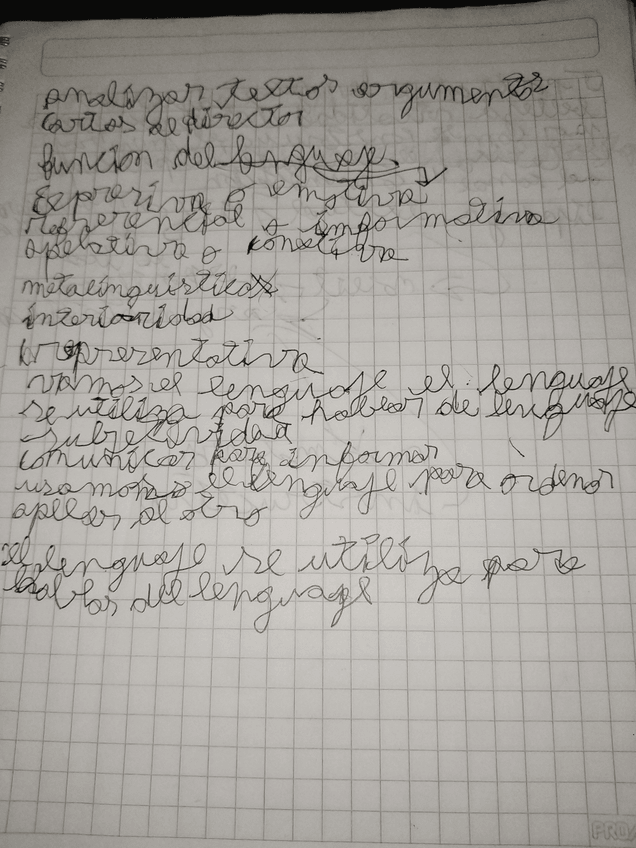 analizar textos argumentos
cartas al director
funcion del lenguaje.
Expresiva o emotiva
referencial o informativa
apelativa o conativa
metalinguistica
interioridad
representativa
vamos el lenguaje el lenguaje
se utiliza para hablar de lenguaje
subjetividad
comunicar para informar
usamos el lenguaje para ordenar
apelar al otro
el lenguaje se utiliza para
hablar del lenguaje
PRO